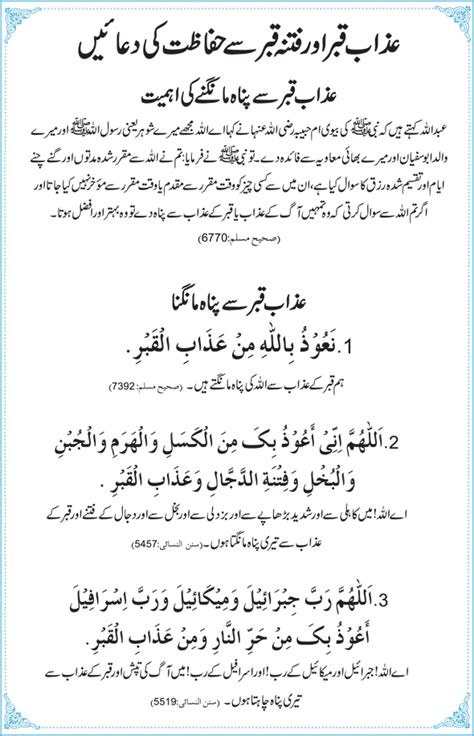 عذاب قبر اور فتنہ قبر سے حفاظت کی دعائیں
عذاب قبر سے پناہ مانگنے کی اہمیت
عبداللہ کہتے ہیں کہ نبی ﷺ کی بیوی ام حبیبہ رضی اللہ عنہا نے کہا اے اللہ مجھے میرے شوہر یعنی رسول اللہ ﷺ اور میرے
والد ابوسفیان اور میرے بھائی معاویہ سے فائدہ دے۔ تو نبی ﷺ نے فرمایا: تم نے اللہ سے مقرر شدہ مدتوں اور گنے چنے
ایام اور تقسیم شدہ رزق کا سوال کیا ہے، ان میں سے کسی چیز کو وقت مقرر سے مقدم یا وقت مقرر سے مؤخر نہیں کیا جاتا اور
اگر تم اللہ سے سوال کرتی کہ وہ تمہیں آگ کے عذاب یا قبر کے عذاب سے پناہ دے تو وہ بہتر اور افضل ہوتا۔
(صحیح مسلم:6770)
عذاب قبر سے پناہ مانگنا
1. نَعُوْذُ بِاللّٰهِ مِنْ عَذَابِ الْقَبْرِ .
ہم قبر کے عذاب سے اللہ کی پناہ مانگتے ہیں۔ (صحیح مسلم:7392)
2. اَللّٰهُمَّ اِنِّیْ أَعُوْذُ بِکَ مِنَ الْکَسَلِ وَالْهَرَمِ وَالْجُبْنِ
وَالْبُخْلِ وَفِتْنَةِ الدَّجَّالِ وَعَذَابِ الْقَبْرِ .
اے اللہ! میں کاہلی سے اور شدید بڑھاپے سے اور بزدلی سے اور بخل سے اور دجال کے فتنے اور قبر کے
عذاب سے تیری پناہ مانگتا ہوں۔ (سنن النسائی:5457)
3. اَللّٰهُمَّ رَبَّ جِبْرَائِیْلَ وَمِیْکَائِیْلَ وَرَبَّ اِسْرَافِیْلَ
أَعُوْذُ بِکَ مِنْ حَرِّ النَّارِ وَمِنْ عَذَابِ الْقَبْرِ .
اے اللہ! جبرائیل اور میکائیل کے رب! اور اسرافیل کے رب! میں آگ کی تپش اور قبر کے عذاب سے
تیری پناہ چاہتا ہوں۔ (سنن النسائی:5519)